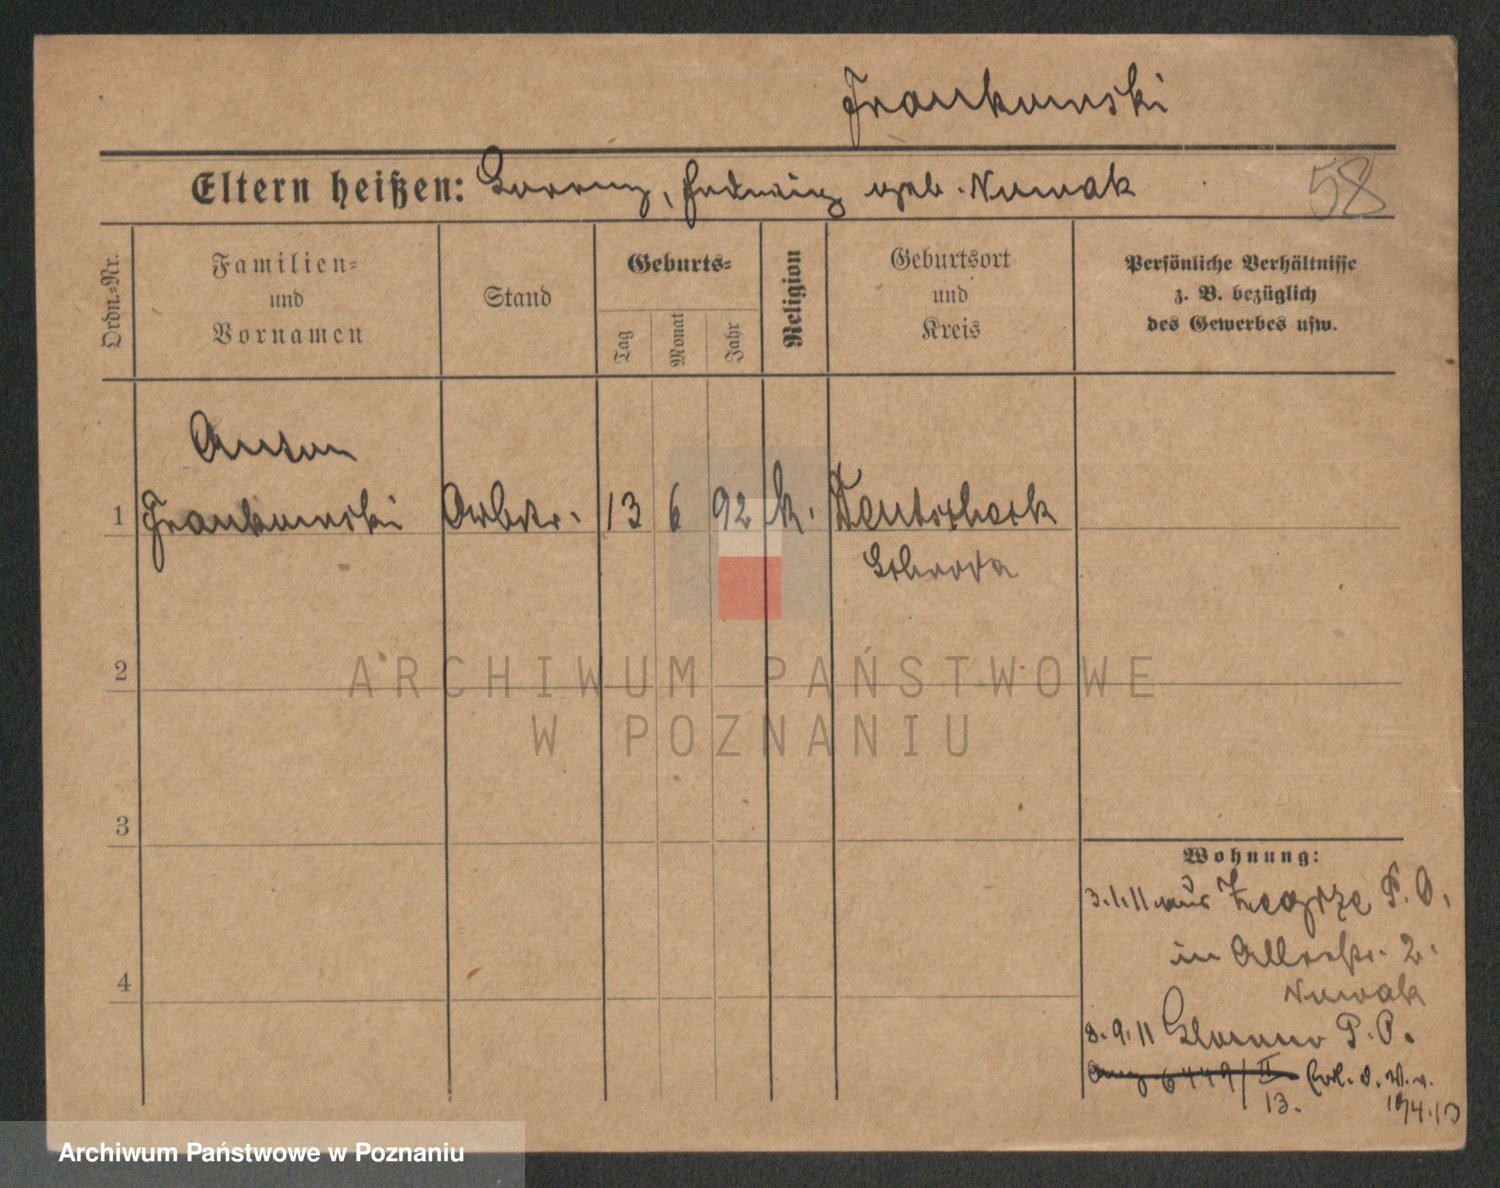 Frankowski
Eltern heißen: Lorenz, Hedwig geb. Nowak
58
Ordn.-Nr.
Familien-
und
Vornamen
Stand
Geburts-
Tag
Monat
Jahr
Religion
Geburtsort
und
Kreis
Persönliche Verhältnisse
z. B. bezüglich
des Gewerbes usw.
Anton
1 Frankowski Arbtr. 13 6 92 k. Deutscheck
Schroda
2
3
4
Wohnung:
3.1.11 aus P. O.
in 2.
Nowak
8.9.11 P. O.
6449/II
13.
ARCHIWUM PAŃSTWOWE
W POZNANIU
Archiwum Państwowe w Poznaniu